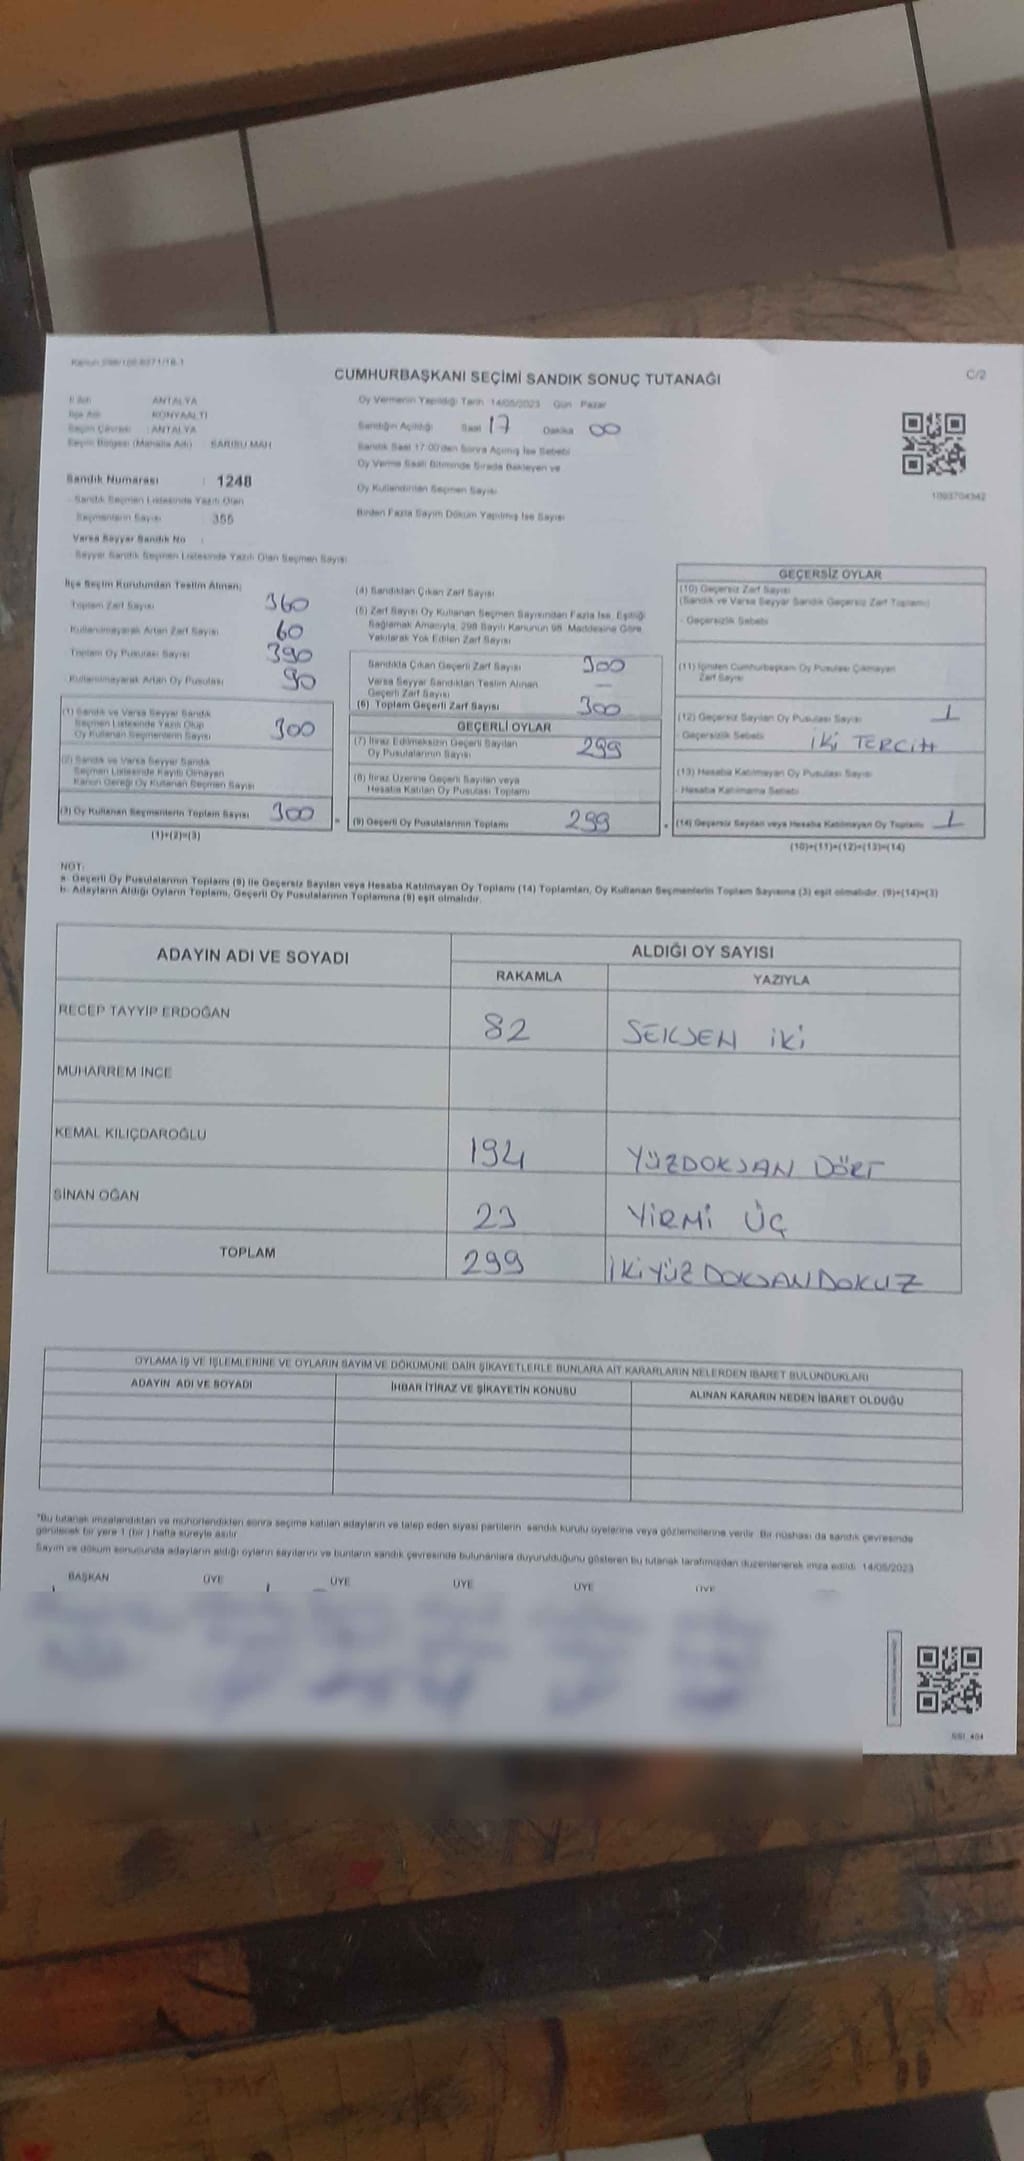 Kanun 298/105 6271/18-1
CUMHURBAŞKANI SEÇİMİ SANDIK SONUÇ TUTANAĞI
C/2
İl Adı : ANTALYA
İlçe Adı : KONYAALTI
Seçim Çevresi : ANTALYA
Seçim Bölgesi (Mahalle Adı) : SARISU MAH
Sandık Numarası : 1248
Sandık Seçmen Listesinde Yazılı Olan
Seçmenlerin Sayısı : 355
Varsa Seyyar Sandık No :
Seyyar Sandık Seçmen Listesinde Yazılı Olan Seçmen Sayısı
Oy Vermenin Yapıldığı Tarih 14/05/2023 Gün Pazar
Sandığın Açıldığı Saat 17 Dakika 00
Sandık Saat 17:00'den Sonra Açılmış İse Sebebi
Oy Verme Saati Bitiminde Sırada Bekleyen ve
Oy Kullandırılan Seçmen Sayısı
Birden Fazla Sayım Döküm Yapılmış İse Sayısı
1003704342
İlçe Seçim Kurulundan Teslim Alınan;
Toplam Zarf Sayısı 360
Kullanılmayarak Artan Zarf Sayısı 60
Toplam Oy Pusulası Sayısı 390
Kullanılmayarak Artan Oy Pusulası 90
(1) Sandık ve Varsa Seyyar Sandık
Seçmen Listesinde Yazılı Olup
Oy Kullanan Seçmenlerin Sayısı 300
(2) Sandık ve Varsa Seyyar Sandık
Seçmen Listesinde Kayıtlı Olmayan
Kanun Gereği Oy Kullanan Seçmen Sayısı
(3) Oy Kullanan Seçmenlerin Toplam Sayısı 300
(1)+(2)=(3)
(4) Sandıktan Çıkan Zarf Sayısı
(5) Zarf Sayısı Oy Kullanan Seçmen Sayısından Fazla İse, Eşitliği
Sağlamak Amacıyla, 298 Sayılı Kanunun 98. Maddesine Göre
Yakılarak Yok Edilen Zarf Sayısı
Sandıkta Çıkan Geçerli Zarf Sayısı 300
Varsa Seyyar Sandıktan Teslim Alınan
Geçerli Zarf Sayısı —
(6) Toplam Geçerli Zarf Sayısı 300
GEÇERLİ OYLAR
(7) İtiraz Edilmeksizin Geçerli Sayılan
Oy Pusulalarının Sayısı 299
(8) İtiraz Üzerine Geçerli Sayılan veya
Hesaba Katılan Oy Pusulası Toplamı
= (9) Geçerli Oy Pusulalarının Toplamı 299
GEÇERSİZ OYLAR
(10) Geçersiz Zarf Sayısı
(Sandık ve Varsa Seyyar Sandık Geçersiz Zarf Toplamı)
- Geçersizlik Sebebi
(11) İçinden Cumhurbaşkanı Oy Pusulası Çıkmayan
Zarf Sayısı
(12) Geçersiz Sayılan Oy Pusulası Sayısı 1
- Geçersizlik Sebebi İKİ TERCİH
(13) Hesaba Katılmayan Oy Pusulası Sayısı
- Hesaba Katılmama Sebebi
+ (14) Geçersiz Sayılan veya Hesaba Katılmayan Oy Toplamı 1
(10)+(11)+(12)+(13)=(14)
NOT:
a- Geçerli Oy Pusulalarının Toplamı (9) ile Geçersiz Sayılan veya Hesaba Katılmayan Oy Toplamı (14) Toplamları, Oy Kullanan Seçmenlerin Toplam Sayısına (3) eşit olmalıdır. (9)+(14)=(3)
b- Adayların Aldığı Oyların Toplamı, Geçerli Oy Pusulalarının Toplamına (9) eşit olmalıdır.
ADAYIN ADI VE SOYADI
ALDIĞI OY SAYISI
RAKAMLA YAZIYLA
RECEP TAYYİP ERDOĞAN 82 SEKSEN İKİ
MUHARREM İNCE
KEMAL KILIÇDAROĞLU 194 YÜZDOKSAN DÖRT
SİNAN OĞAN 23 YİRMİ ÜÇ
TOPLAM 299 İKİYÜZDOKSANDOKUZ
OYLAMA İŞ VE İŞLEMLERİNE VE OYLARIN SAYIM VE DÖKÜMÜNE DAİR ŞİKAYETLERLE BUNLARA AİT KARARLARIN NELERDEN İBARET BULUNDUKLARI
ADAYIN ADI VE SOYADI İHBAR İTİRAZ VE ŞİKAYETİN KONUSU ALINAN KARARIN NEDEN İBARET OLDUĞU
*Bu tutanak imzalandıktan ve mühürlendikten sonra seçime katılan adayların ve talep eden siyasi partilerin sandık kurulu üyelerine veya gözlemcilerine verilir. Bir nüshası da sandık çevresinde
görülecek bir yere 1 (bir ) hafta süreyle asılır.
Sayım ve döküm sonucunda adayların aldığı oyların sayılarını ve bunların sandık çevresinde bulunanlara duyurulduğunu gösteren bu tutanak tarafımızdan düzenlenerek imza edildi. 14/05/2023
BAŞKAN ÜYE ÜYE ÜYE ÜYE ÜYE